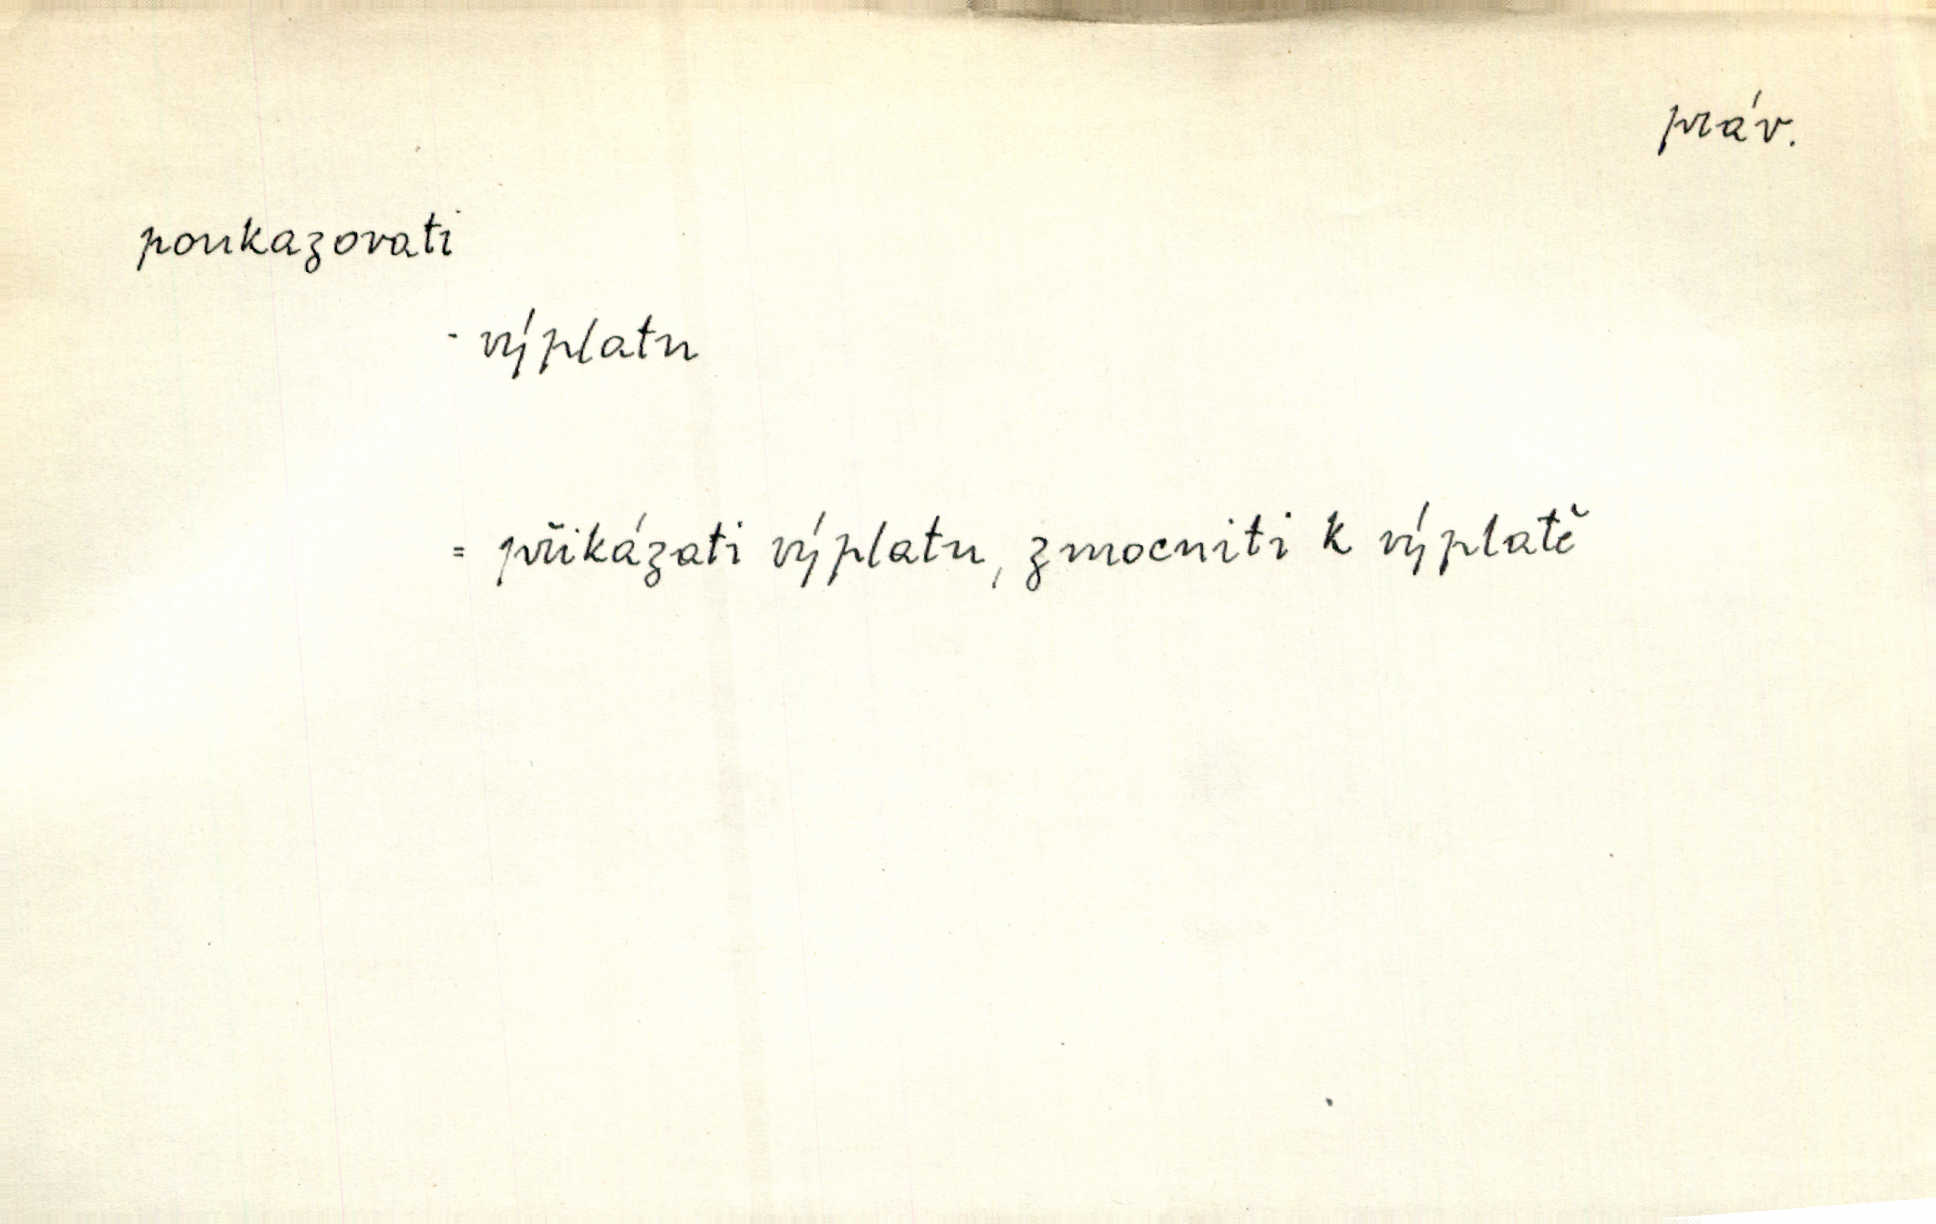 práv.
poukazovati
- výplatu
= přikázati výplatu, zmocniti k výplatě